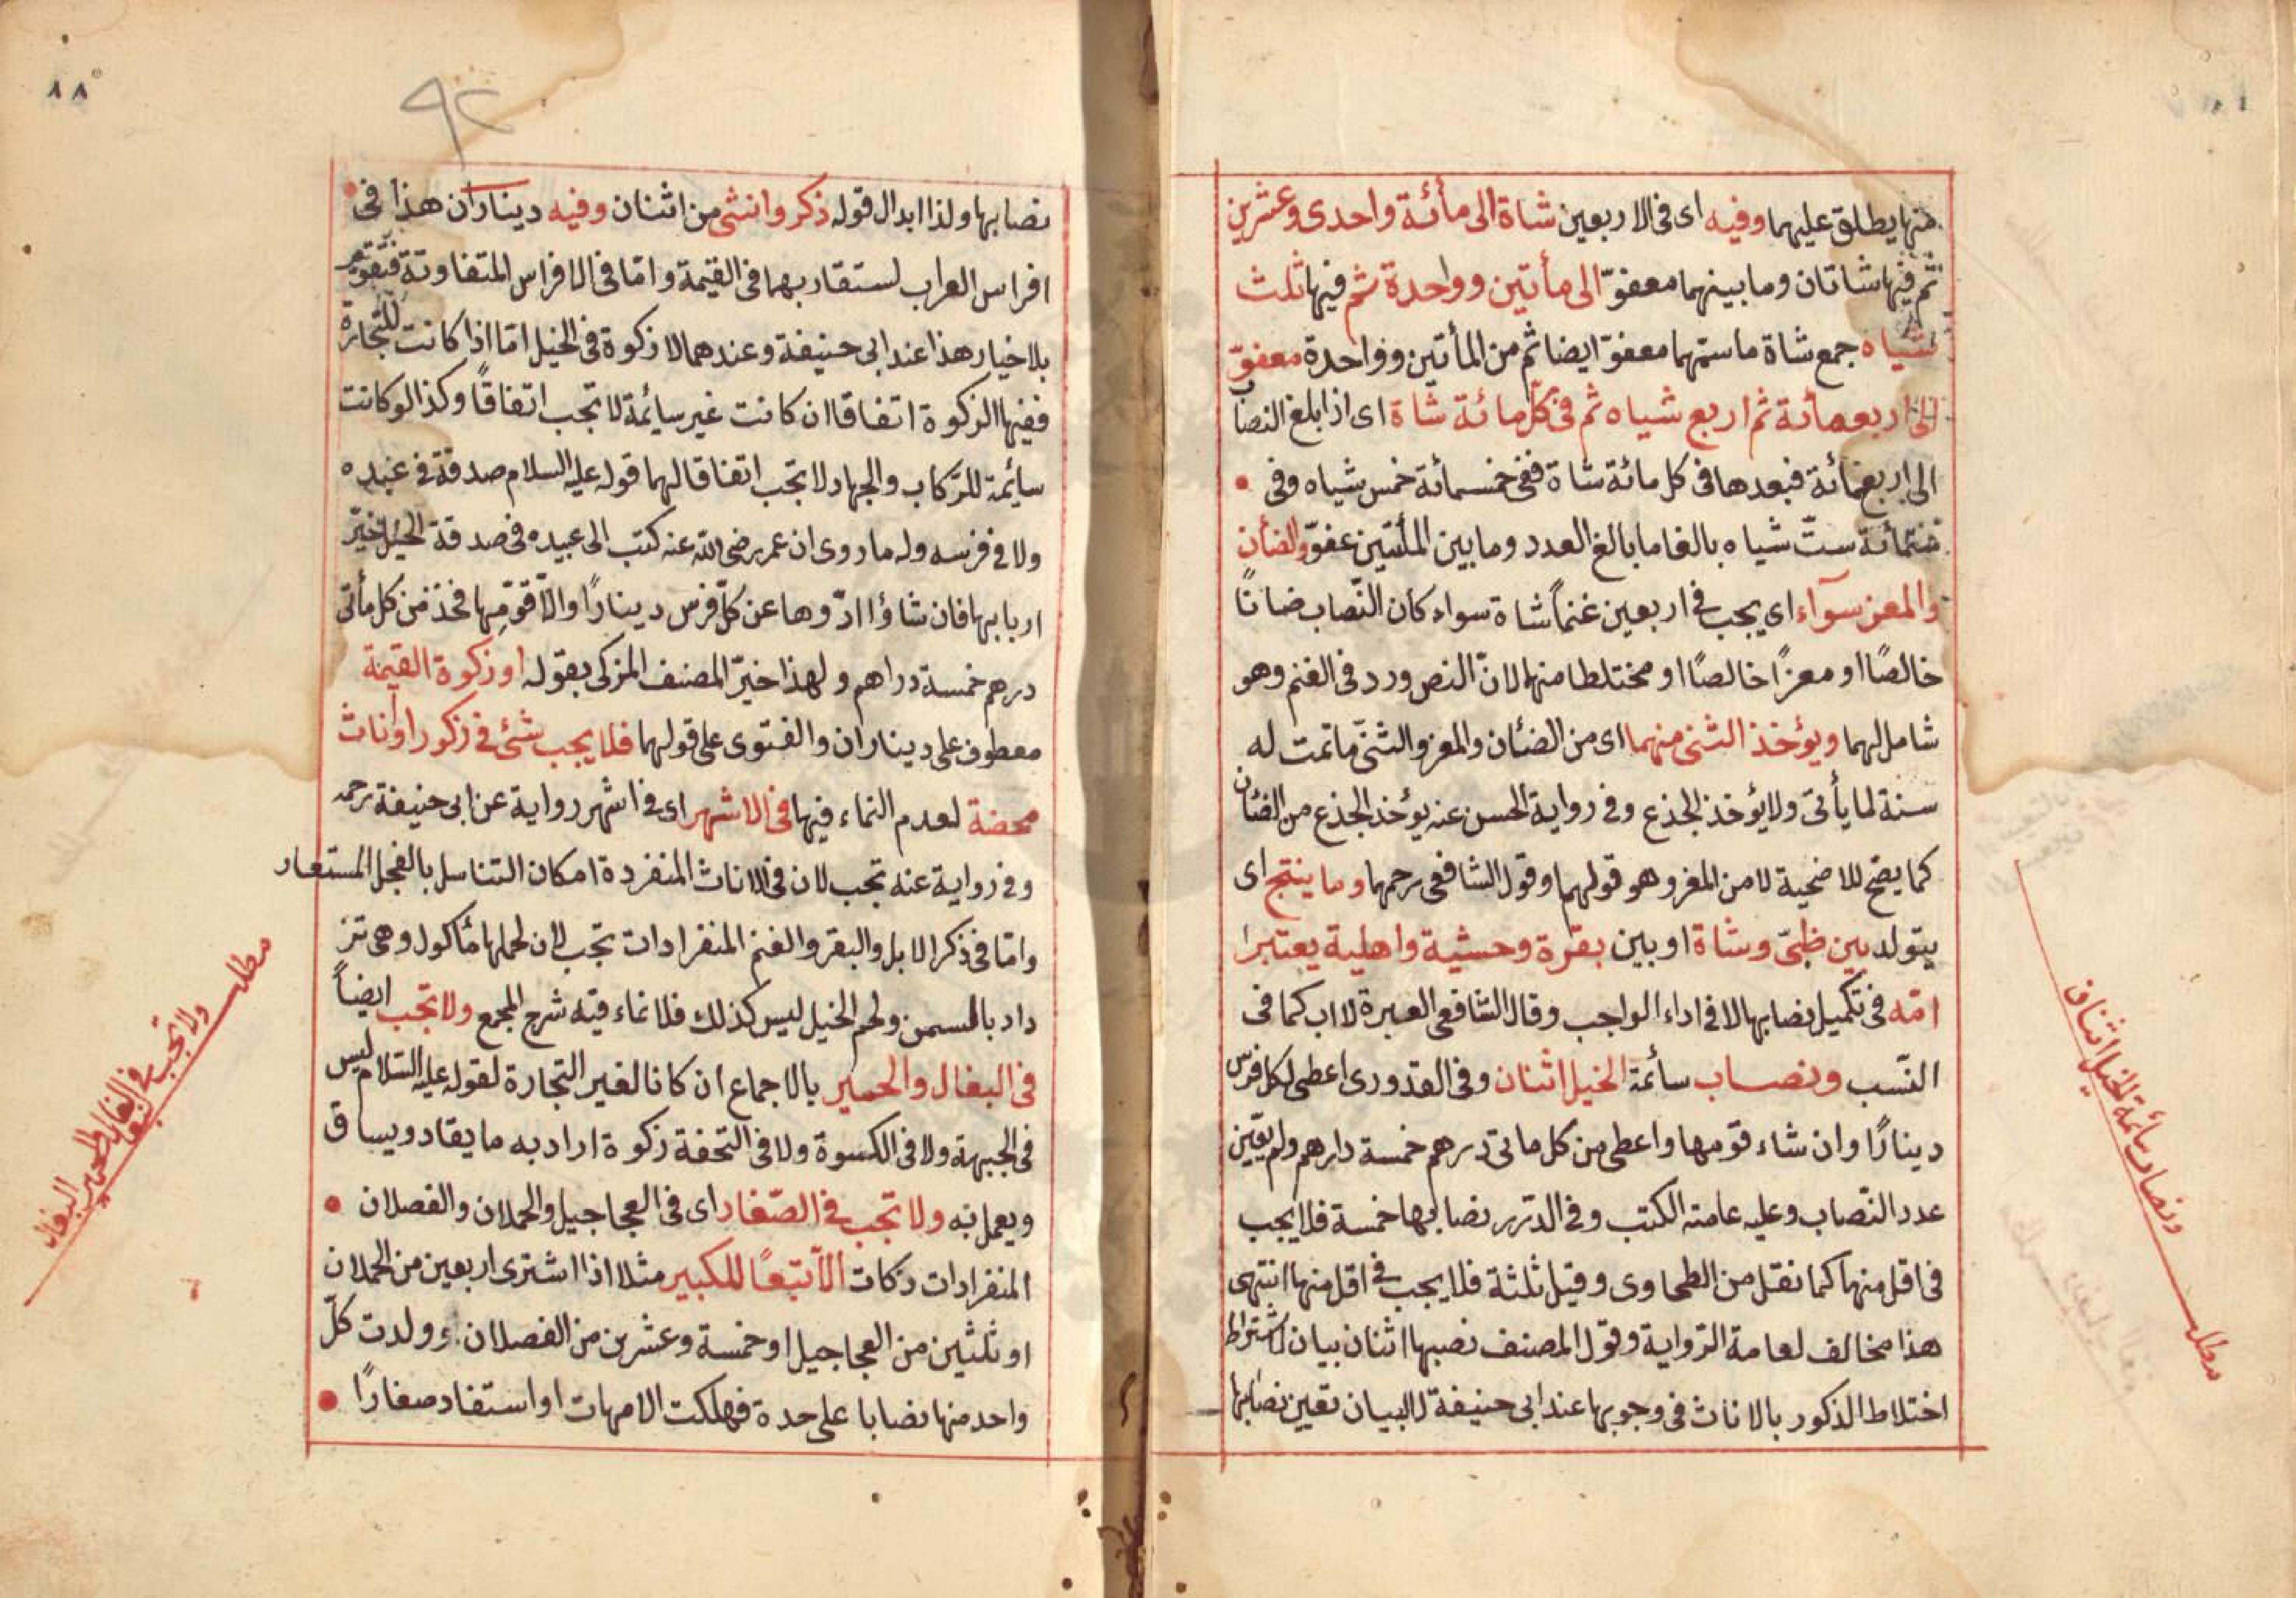 منها يطلق عليهما وفيه اى فى الاربعين شاة الى مأئة واحدى وعشرين
ثم فيها شاتان وما بينهما معفوّ الى مأتين وواحدة ثم فيها ثلث
شياه جمع شاة ما ستهما معفوّ ايضا ثم من المأتين وواحدة معفوّ
الى اربعمائة ثم اربع شياه ثم فى كلّ مائة شاة اى اذا بلغ النصاب
الى اربعمائة فبعدها فى كل مائة شاة ففى خمسمائة خمس شياه وفى
ستمائة ستّ شياه بالغا ما بالغ العدد وما بين المأتين عفوّ والضأن
والمعز سوآء اى يجب فى اربعين غنماً شاة سواء كان النّصاب ضانًا
خالصًا او معزًا خالصًا او مختلطا منها لانّ النص ورد فى الغنم وهو
شامل لهما ويؤخذ الثنى منهما اى من الضئان والمعز والثنىّ ما تمت له
سنة لما يأتى ولا يؤخذ الجذع وفى رواية الحسن عنه يؤخذ الجذع من الضئان
كما يصح للاضحية لا من المعز وهو قولهما وقول الشافعى رحمها وما ينتج اى
يتولد بين ظبىّ وشاة او بين بقرة وحشية واهلية يعتبر
امّه فى تكميل نصابها لا فى اداء الواجب وقال الشافعى العبرة لاب كما فى
النّسب ونصاب سائمة الخيل اثنان وفى القدورى اعطى لكل فرس
دينارًا وان شاء قوّمها واعطى من كل ماتى درهم خمسة دارهم ولم يعيّن
عدد النّصاب وعليه عامته الكتب وفى الدّرر نصابها خمسة فلا يجب
فى اقل منها كما نقل من الطحاوى وقيل ثلثة فلا يجب فى اقل منها انتهى
هذا مخالف لعامة الرّواية وقول المصنف نصبها اثنان بيان لاشتراط
اختلاط الذكور بالاناث فى وجوبها عند ابى حنيفة لا لبيان تعين نصابها
مطلب ونصاب سائمة الخيل اثنان
٨٨
٩٢
نصابها ولذا ابدال قوله ذكر وانثى من اثنان وفيه ديناران هذا فى
افراس العراب لستقاربهما فى القيمة وامّا فى الافراس المتفاوتة فتقوّم
بلا خيار هذا عند ابى حنيفة وعندهما لا زكوة فى الخيل امّا اذا كانت للتّجارة
ففيها الزكوة اتفاقا ان كانت غير سايمة لا تجب اتفاقاً وكذا لو كانت
سايمة للرّكاب والجهاد لا تجب اتفاقا لهما قوله عليه السلام صدقة فى عبده
ولا فى فرسه وله ما روى ان عمر رضى الله عنه كتب الى عبيده فى صدقة الخيل خيّر
اربابها فان شاؤا ادّوها عن كلّ فرس دينارًا والّا قوّمها فخذ من كل مأتى
درهم خمسة دراهم ولهذا خيّر المصنف المزكى بقوله او زكوة القيمة
معطوف على ديناران والفتوى على قولهما فلا يجب شئ فى ذكور او اناث
محضة لعدم النماء فيها فى الاشهر اى فى اشهر رواية عن ابى حنيفة رحمه
وفى رواية عنه تجب لان فى الاناث المنفردة امكان التناسل بالفحل المستعار
وامّا فى ذكر الابل والبقر والغنم المنفرادات تجب لان لحملها مأكول وهى تز
داد بالسمن ولحم الخيل ليس كذلك فلا نماء فيه شرح المجمع ولا تجب ايضاً
فى البغال والحمير بالاجماع ان كانا لغير التجارة لقوله عليه السّلام ليس
فى الجبهة ولا فى الكسوة ولا فى النخفة زكوة اراد به ما يقاد ويساق
ويعمل به ولا تجب فى الصّغار اى فى العجاجيل والحملان والفصلان
المنفرادات زكات الّا تبعًا للكبير مثلا اذا اشترى اربعين من الحملان
او ثلثين من العجاجيل او خمسة وعشرين من الفصلان وولدت كلّ
واحد منها نصابا على حدة فهلكت الامهات او استفاد صغارًا
مطلب ولا تجب فى البغال والحمير